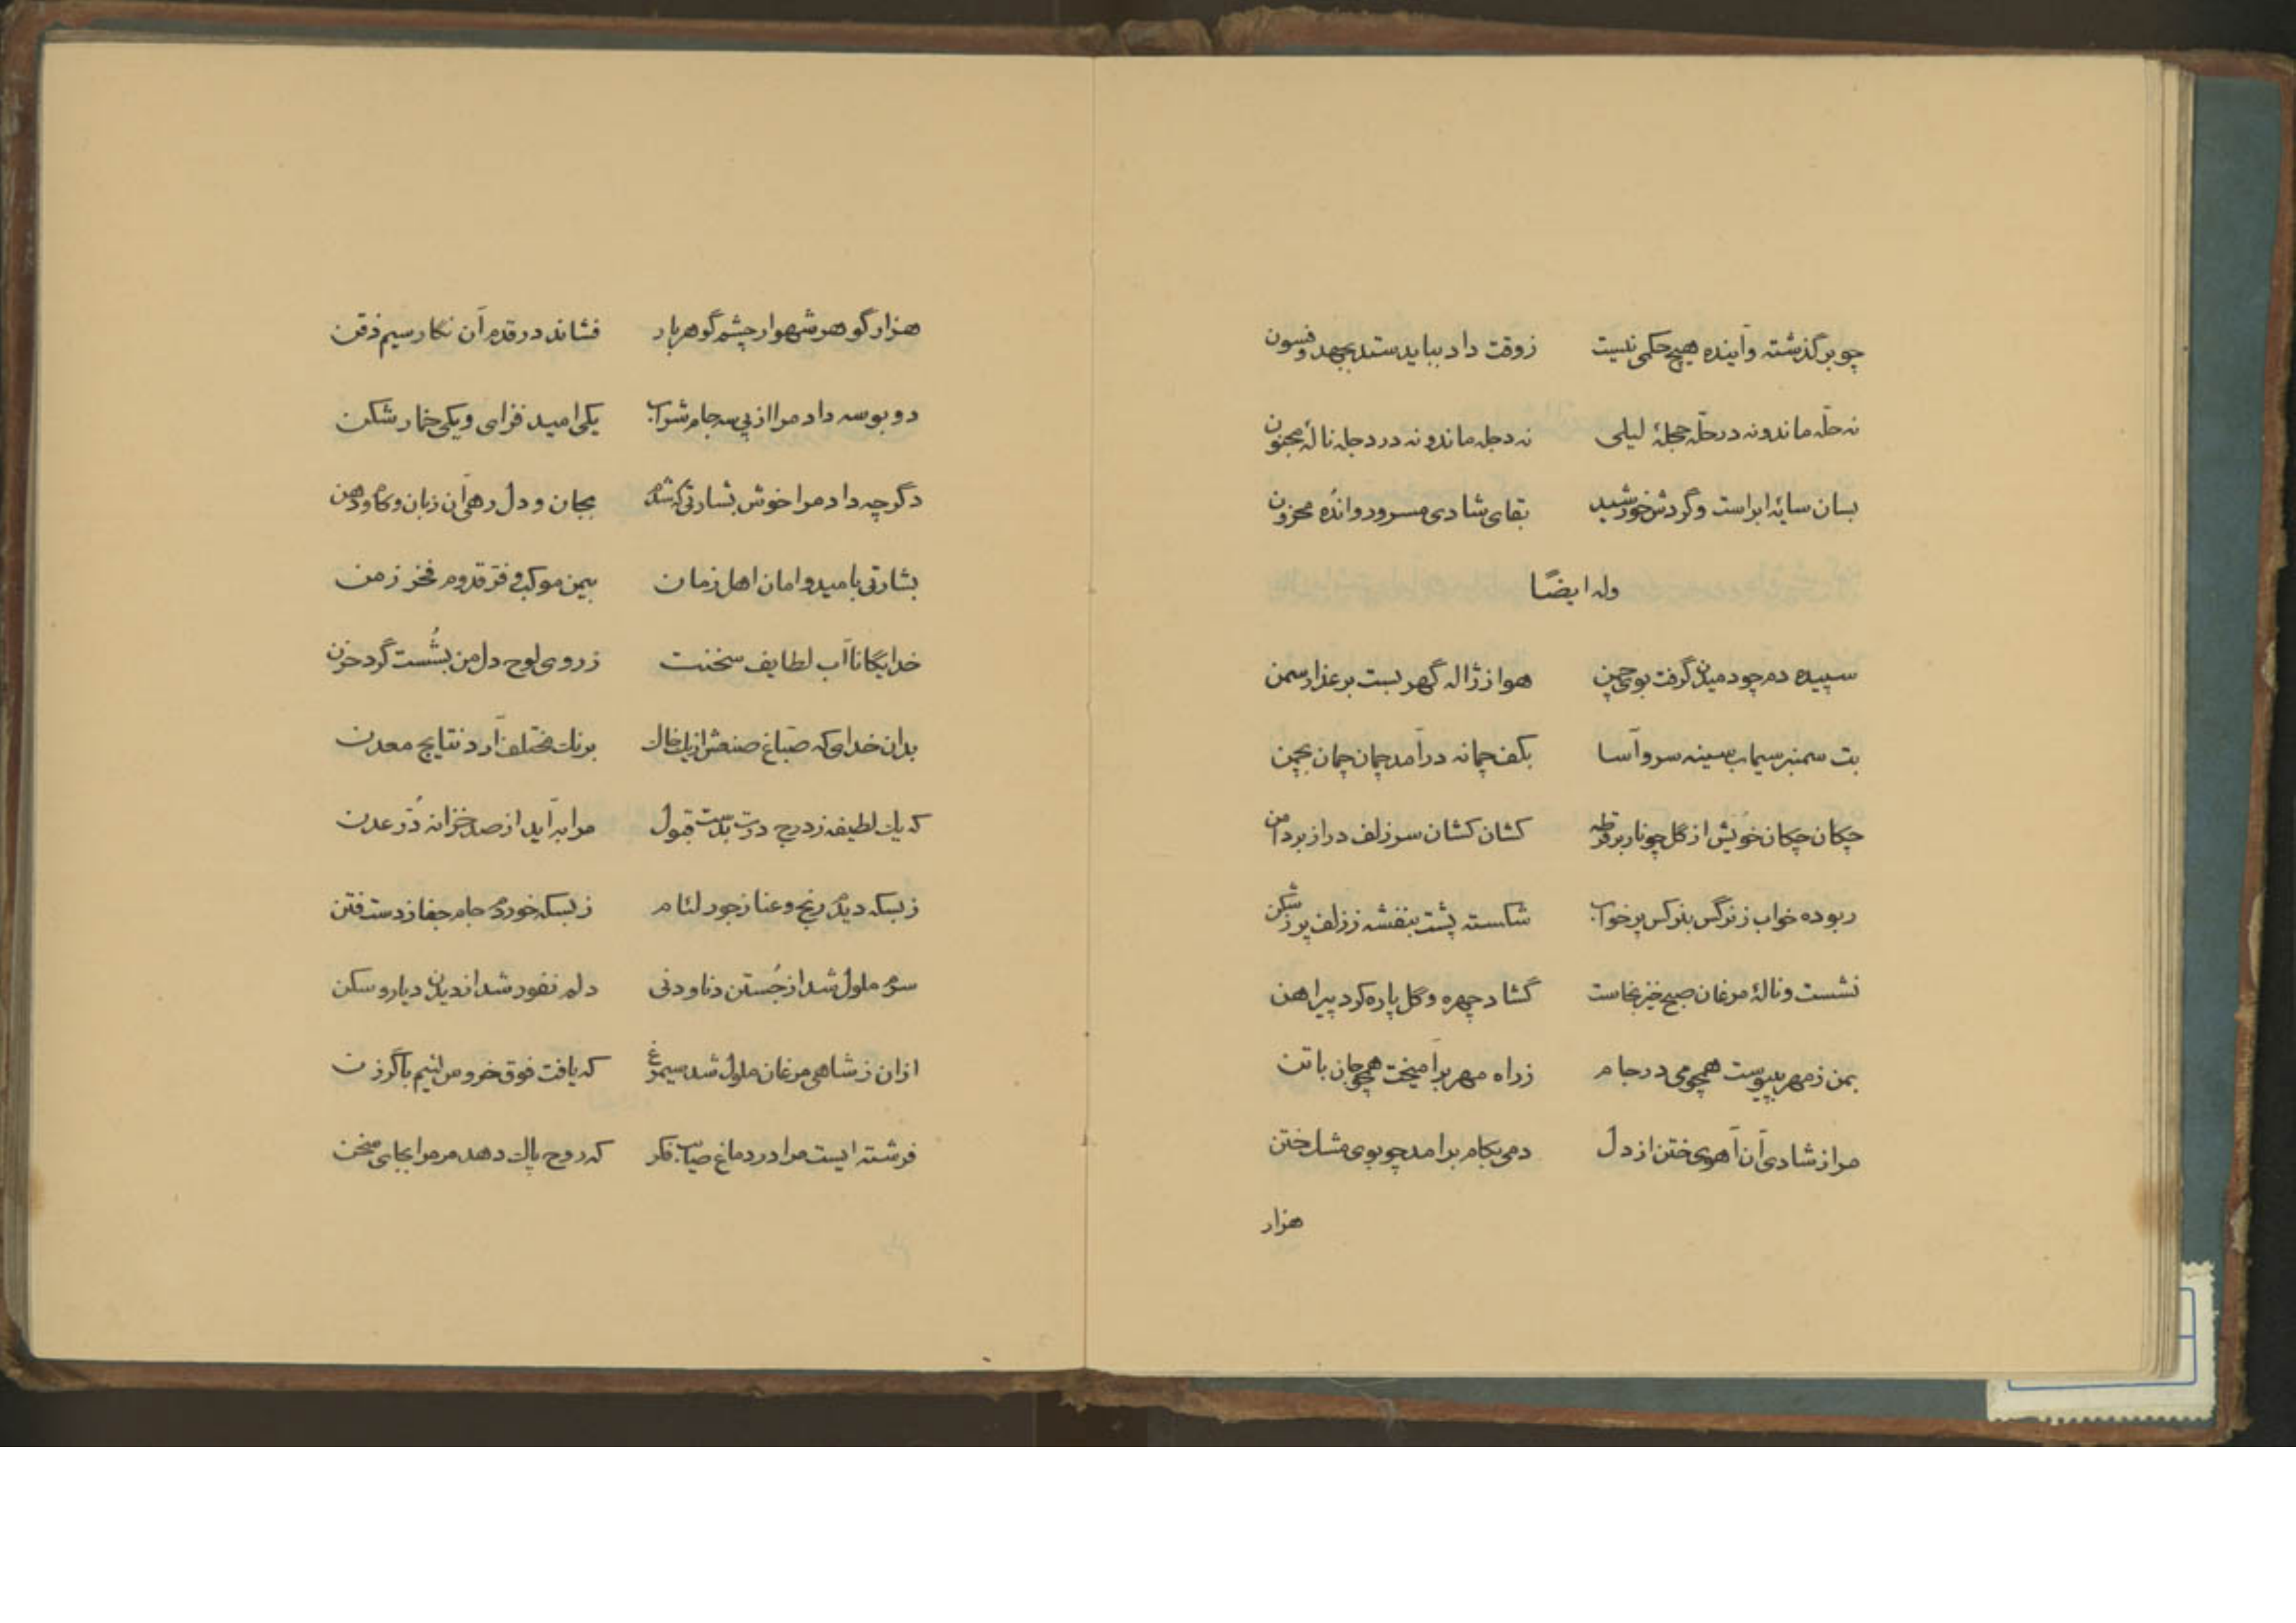 چو بر گذشته و آینده هیچ حکمی نیست زوقت داد بباید ستد بجهد و فسون
نه حلّه ماند و نه در حلّه حجلۀ لیلی نه دجله ماند و نه در دجله نالۀ مجنون
بسان سایۀ ابر است و گردش خورشید بقای شادی مسرور و اندُه محزون
وله ایضًا
سپیده دم چو دمیدن گرفت بوی چمن هوا ز ژاله گهر بست بر عذار سمن
بت سمنبر سیماب سینه سرو آسا بکف چمانه درآمد چمان چمان بچمن
چکان چکان خویش از گل چو نار بر قرطه کشان کشان سر زلف دراز بر دامن
ربوده خواب ز نرگس بنرگس پر خواب شکسته پشت بنفشه ز زلف پر ز شکن
نشست و نالۀ مرغان صبح خیز بخاست گشاد چهره و گل پاره کرد پیراهن
بمن ز مهر بپیوست همچو می در جام ز راه مهر برآمیخت همچو جان با تن
مرا ز شادی آن آهوی ختن از دل دمی بکام برامد چو بوی مشک ختن
هزار
هزار گوهر شهوار چشم گوهر بار فشاند در قدم آن نگار سیم ذقن
دو بوسه داد مرا از پی سه جام شراب یکی امید فزای و یکی خمار شکن
دگر چه داد مرا خوش بشارتی که شدم بجان و دل رهی آن زبان و کام و دهن
بشارتی بامید و امان اهل زمان بیمن موکب و فرّ قدوم فخر زمن
خدایگانا آب لطایف سخنت ز روی لوح دل من بشُست گرد حزن
بدان خدای که صبّاغ صنعش از یک خاک برنک مختلف آرد نتایج معدن
که یک لطیفه ز درج درت بدست قبول مرا به آید از صد خزانه دُرّ عدن
ز بسکه دیدم رنج و عنا ز جور لئام ز بسکه خوردم جام جفا ز دست فتن
سرم ملول شد از جُستن دنا و دنی دلم نفور شد از دیدن دیار و سکن
ازان ز شاهی مرغان ملول شد سیمرغ که یافت فوق خروس لئیم با گرزن
فرشته ایست مرا در دماغ صایب فکر که روح پاک دهد مر مرا بجای سخن